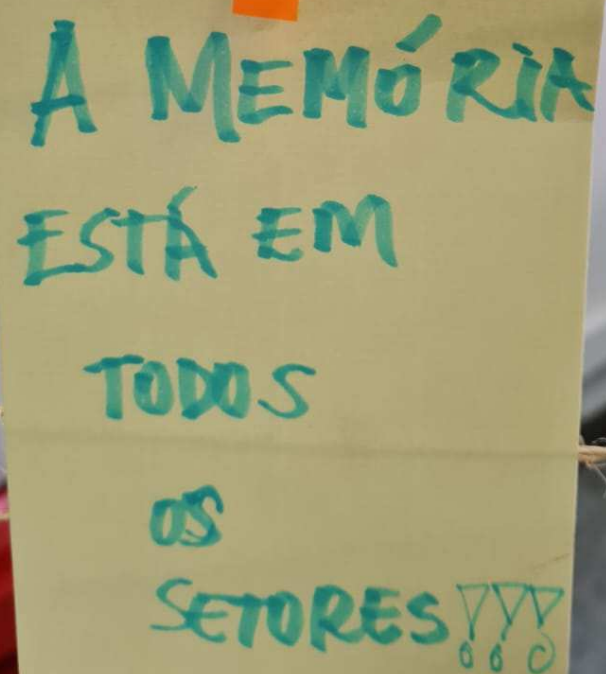 A MEMÓRIA
ESTÁ EM
TODOS
OS
SETORES!!!